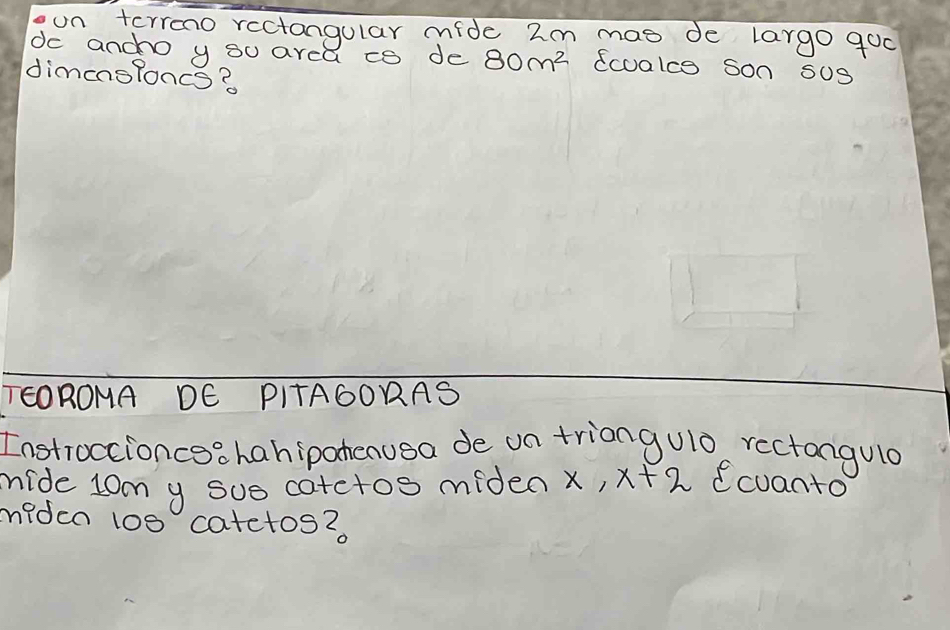 un terreno rectangular mide 2m mas de largo que
de ancho y su area es de 80m² ¿cuales son sus
dimensiones?
TEOROMA DE PITAGORAS
Instrucciones: hahipotenusa de un triangulo rectangulo
mide 10m y sus catetos miden x, x+2 ¿cuanto
miden los catetos?